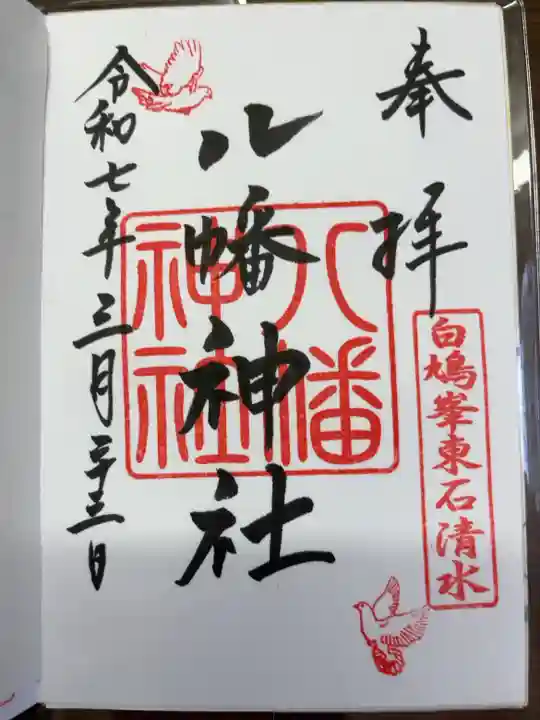 奉拝
白鳩峯東石清水
八幡神社
八幡神社
令和七年三月二十三日